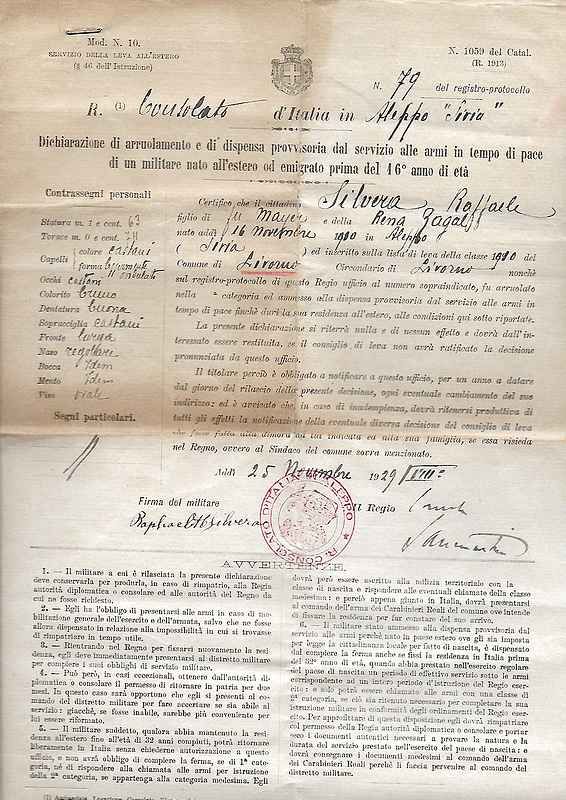 Mod. N. 10.
SERVIZIO DELLA LEVA ALL'ESTERO
(§ 46 dell'Istruzione)
N. 1059 del Catal.
(R. 1913)
N. 79 del registro-protocollo
R. (1) Consolato d'Italia in Aleppo "Siria"
Dichiarazione di arruolamento e di dispensa provvisoria dal servizio alle armi in tempo di pace
di un militare nato all'estero od emigrato prima del 16° anno di età
Contrassegni personali
Statura m. 1 e cent. 63
Torace m. 0 e cent.
Capelli colore castani
forma
Occhi castani
Colorito bruno
Dentatura buona
Sopracciglia castani
Fronte larga
Naso regolare
Bocca Idem
Mento Idem
Viso ovale
Segni particolari.
Certifico che il cittadino Silvera Raffaele
figlio di fu Mayer e della Rena
nato addì 16 novembre 1910 in Aleppo
( Siria ) ed inscritto sulla lista di leva della classe 1910 del
Comune di Livorno Circondario di Livorno nonchè
sul registro-protocollo di questo Regio ufficio al numero sopraindicato, fu arruolato
nella ª categoria ed ammesso alla dispensa provvisoria dal servizio alle armi in
tempo di pace finchè duri la sua residenza all'estero, alle condizioni qui sotto riportate.
La presente dichiarazione si riterrà nulla e di nessun effetto e dovrà dall'in-
teressato essere restituita, se il consiglio di leva non avrà ratificato la decisione
pronunciata da questo ufficio.
Il titolare perciò è obbligato a notificare a questo ufficio, per un anno a datare
dal giorno del rilascio della presente decisione, ogni eventuale cambiamento del suo
indirizzo: ed è avvisato che, in caso di inadempienza, dovrà ritenersi produttiva di
tutti gli effetti la notificazione della eventuale diversa decisione del consiglio di leva
che fosse fatta alla dimora da lui indicata ed alla sua famiglia, se essa risieda
nel Regno, ovvero al Sindaco del comune sovra menzionato.
Addì 25 Novembre 1929 / VIII°
Firma del militare
Il Regio
R. CONSOLATO D'ITALIA ALEPPO
AVVERTENZE.
1. — Il militare a cui è rilasciata la presente dichiarazione
deve conservarla per produrla, in caso di rimpatrio, alle Regia
autorità diplomatica o consolare ed alle autorità del Regno da
cui ne fosse richiesto.
2. — Egli ha l'obbligo di presentarsi alle armi in caso di mo-
bilitazione generale dell'esercito e dell'armata, salvo che ne fosse
allora dispensato in relazione alla impossibilità in cui si trovasse
di rimpatriare in tempo utile.
3. — Rientrando nel Regno per fissarvi nuovamente la resi-
denza, egli deve immediatamente presentarsi al distretto militare
per compiere i suoi obblighi di servizio militare.
4. — Può però, in casi eccezionali, ottenere dall'autorità di-
plomatica o consolare il permesso di ritornare in patria per due
mesi. In questo caso sarà opportuno che egli si presenti al co-
mando del distretto militare per fare accertare se sia abile al
servizio: giacchè, se fosse inabile, sarebbe più conveniente per
lui essere riformato.
5. — Il militare suddetto, qualora abbia mantenuto la resi-
denza all'estero fino all'età di 32 anni compiuti, potrà ritornare
liberamente in Italia senza chiederne autorizzazione a questo
ufficio, e non avrà obbligo di compiere la ferma, se di 1ª cate-
goria, nè di rispondere alla chiamata alle armi per istruzione
della 2ª categoria, se appartenga alla categoria medesima. Egli
dovrà però essere ascritto alla milizia territoriale con la
classe di nascita e rispondere alle eventuali chiamate della classe
medesima: e perciò appena giunto in Italia, dovrà presentarsi
al comando dell'arma dei Carabinieri Reali del comune ove intende
di fissare la residenza per far constare del suo arrivo.
6. — Il militare stato ammesso alla dispensa provvisoria dal
servizio alle armi perchè nato in paese estero ove gli sia imposta
per legge la cittadinanza locale per fatto di nascita, è dispensato
dal compiere la ferma anche se fissi la residenza in Italia prima
del 32° anno di età, quando abbia prestato nell'esercito regolare
del paese di nascita un periodo di effettivo servizio sotto le armi
corrispondente ad un intero periodo d'istruzione del Regio eser-
cito: e solo potrà essere chiamato alle armi con una classe di
2ª categoria, se ciò sia ritenuto necessario per completare la sua
istruzione militare in conformità degli ordinamenti del Regio eser-
cito. Per approfittare di questa disposizione egli dovrà rimpatriare
col permesso della Regia autorità diplomatica o consolare e portare
seco documenti autentici necessari a provare la natura e la
durata del servizio prestato nell'esercito del paese di nascita: e
dovrà consegnare i documenti medesimi al comando dell'arma
dei Carabinieri Reali perchè li faccia pervenire al comando del
distretto militare.